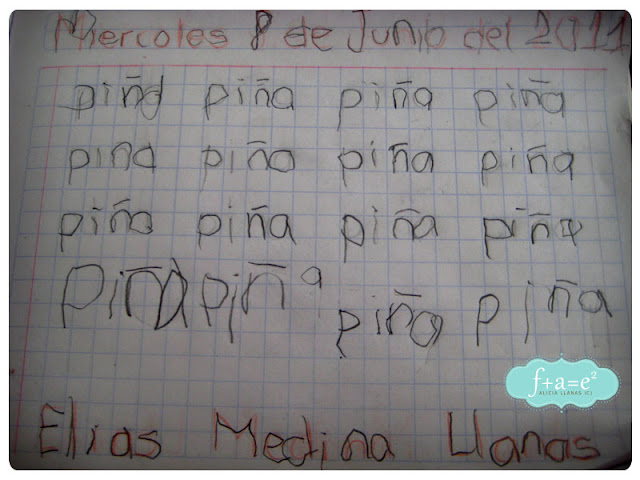 Miercoles 8 de Junio del 2011
piña piña piña piña
piña piña piña piña
piña piña piña piña
piña piña piña piña
f+a=e²
ALICIA LLANAS (C)
Elias Medina Llanas